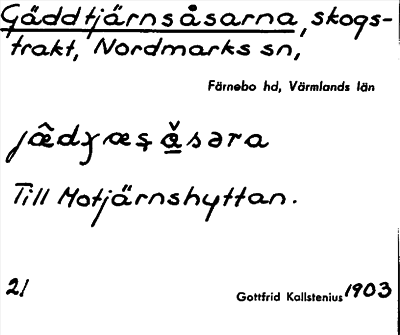 Gäddtjärnsåsarna, skogs-
trakt, Nordmarks sn,
Färnebo hd, Värmlands län
Till Motjärnshyttan.
21 Gottfrid Kallstenius 1903